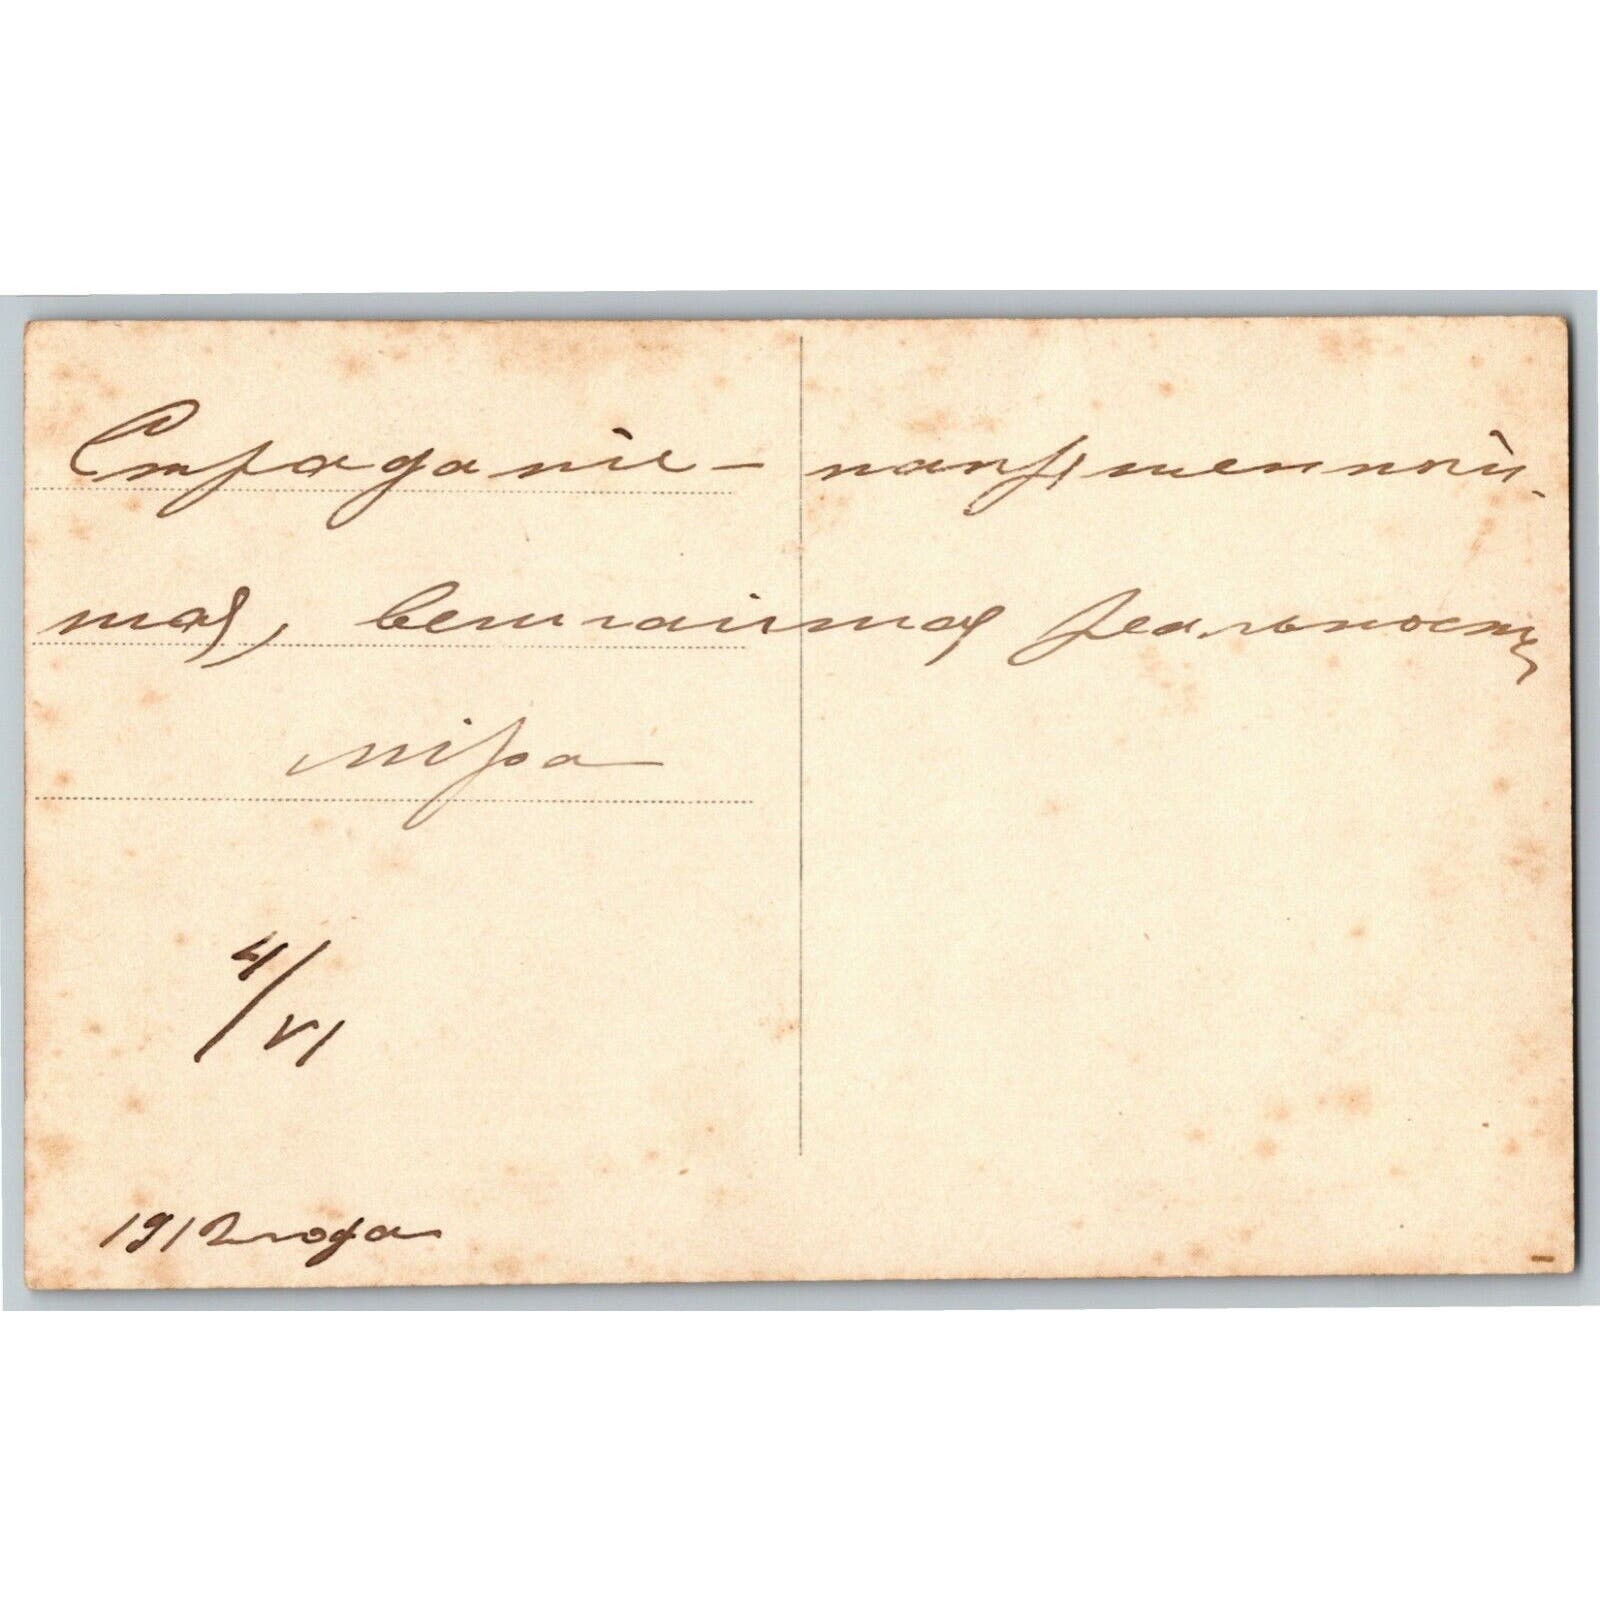 Страданіе – напряженнѣй-
шая, величайшая реальность
міра
4/VI
1912 года